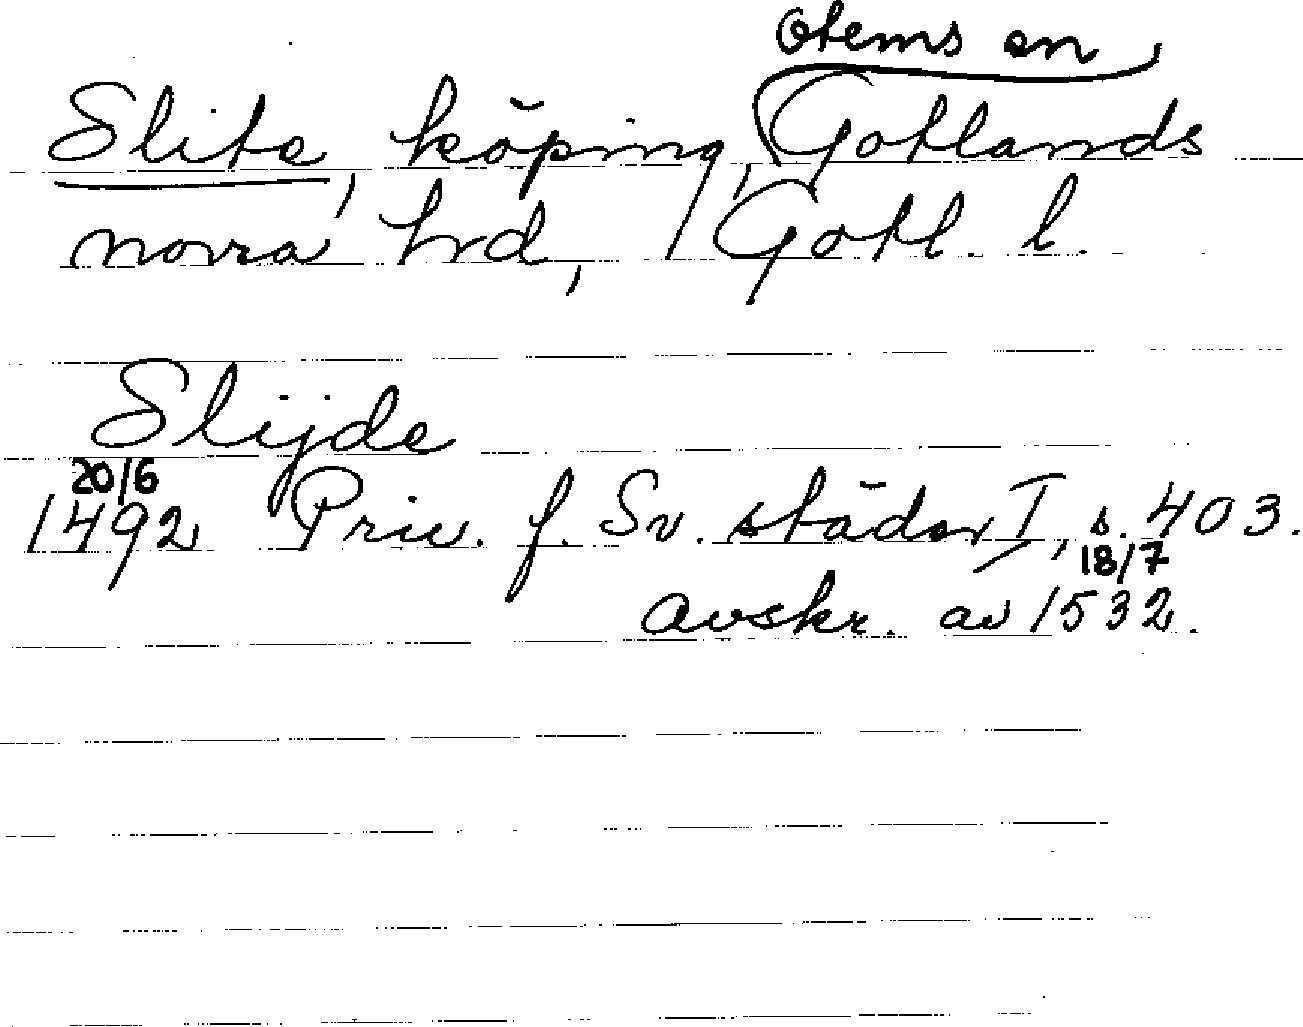 Otems sn
Slite, köping, Gotlands
norra hrd, Gotl. l.
Slijde
20/6
1492 Priv. f. Sv. städer I, s. 403.
18/7
avskr. av 1532.